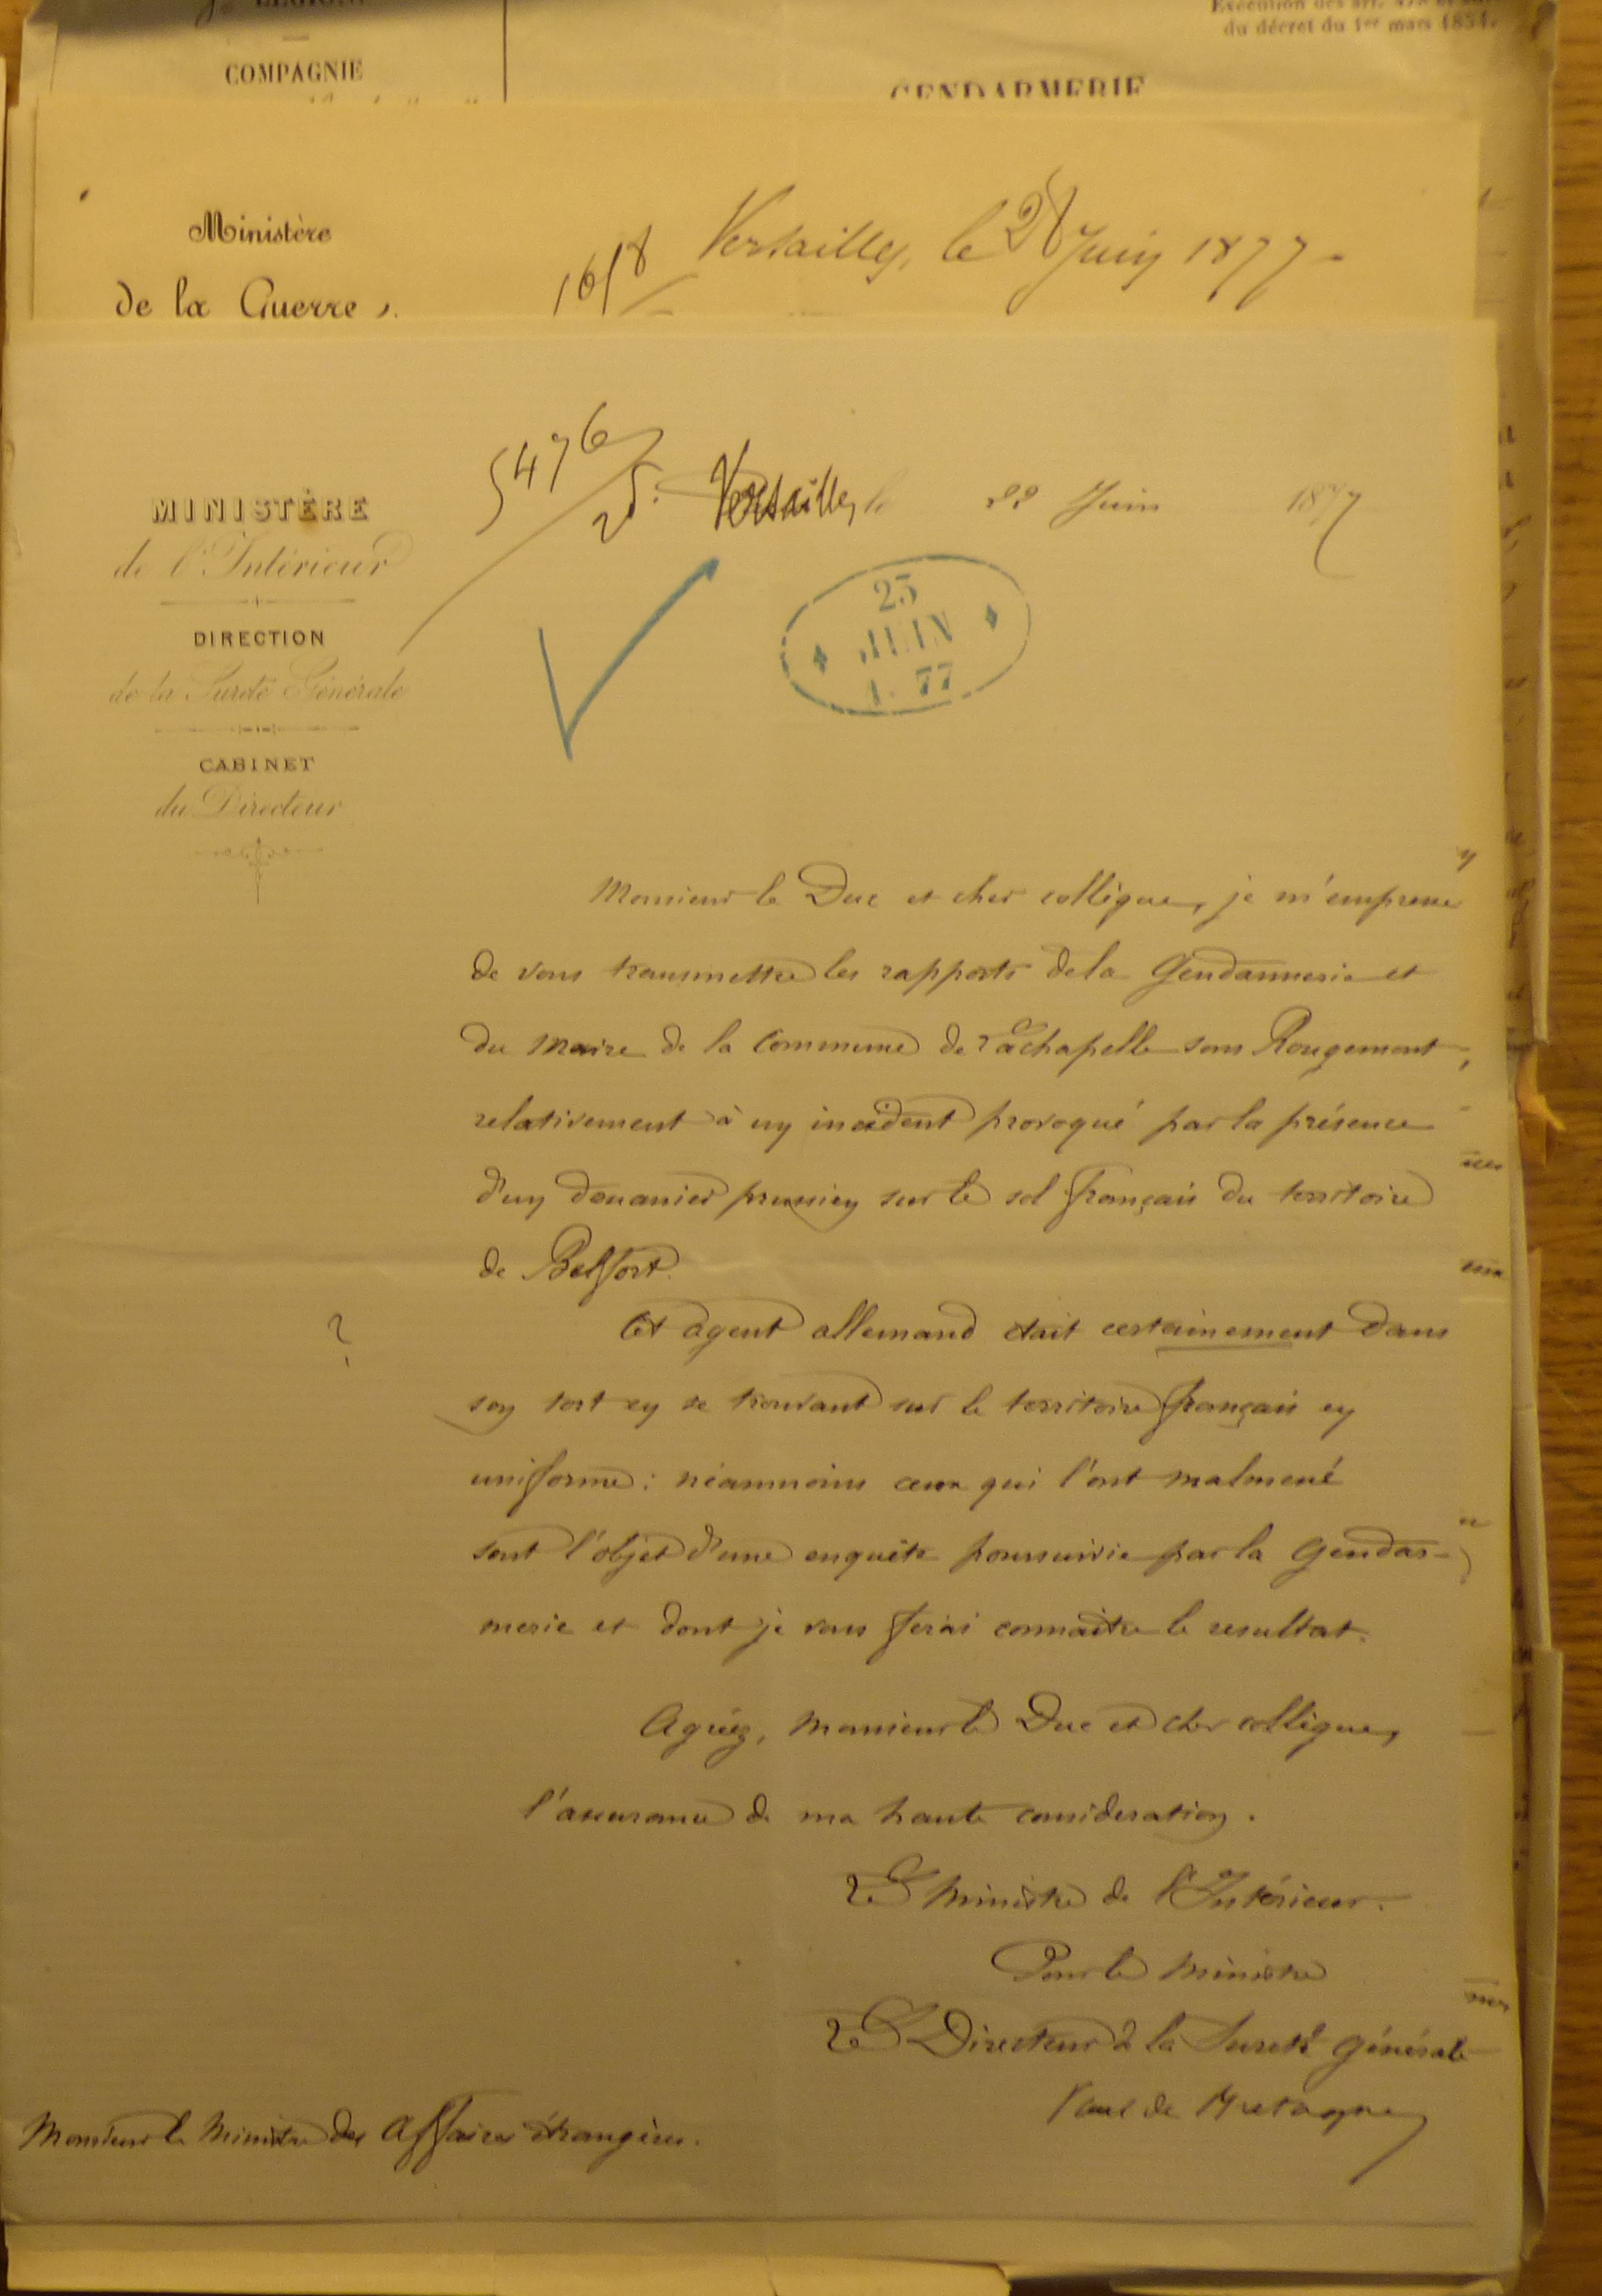 COMPAGNIE
du décret du 1er mars 1854.
GENDARMERIE
Ministère
de la Guerre
1618
Versailles, le 28 Juin 1877
MINISTÈRE
de l'Intérieur
DIRECTION
de la Sureté Générale
CABINET
du Directeur
5476
25.
Versailles, le 22 Juin 1877
23
JUIN
1. 77
Monsieur le Duc et cher collègue, je m'empresse
de vous transmettre les rapports de la Gendarmerie et
du Maire de la Commune de Lachapelle sous Rougemont,
relativement à un incident provoqué par la présence
d'un douanier prussien sur le sol français du territoire
de Belfort.
?
Cet agent allemand était certainement dans
son tort en se trouvant sur le territoire français en
uniforme : néanmoins ceux qui l'ont malmené
sont l'objet d'une enquête poursuivie par la Gendar-
merie et dont je vous ferai connaître le resultat.
Agréez, Monsieur le Duc et cher collègue,
l'assurance de ma haute consideration.
Le Ministre de l'Intérieur.
Pour le Ministre
Le Directeur de la Sureté Générale
Monsieur le Ministre des Affaires étrangères.